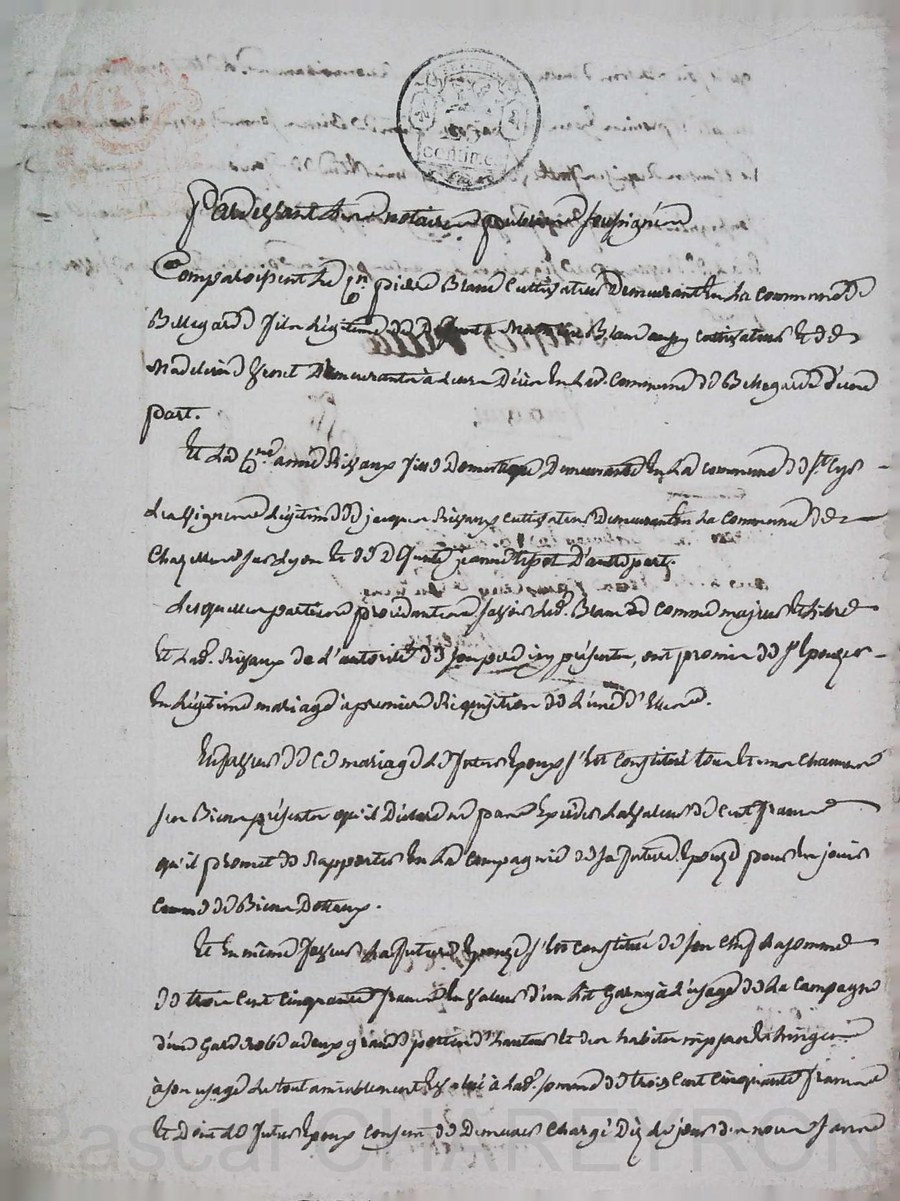 25
centimes
Pardevant Les notaires publics soussignés
Comparoissent Le Cn pierre Blanc Cultivateur Demeurant En La commune de
Bellegarde fils Légitime de Defunt Blanc aussy cultivateur et de
Madeleine Demeurante à Leur Décès En Lad. Commune de Bellegarde d'une
part.
Et La Cne anne Rivaux fille Domestique Demeurante En La commune de St Cyr
Les vignes Légitime de jacques Rivaux cultivateur Demeurant En La Commune de
Chazelles sur Lyon et de Défunte jeanne d'autre part.
Lesquelles parties procédantes savoir Led. Blanc comme majeur et Libre
Et Lad. Rivaux de L'autorité de son père icy présente, ont promis de S'Epouser
En Légitime mariage à première Réquisition de L'une d'Elles.
En faveur de Ce mariage Le futur Epoux s'Est Constitué tous Et uns Chacuns
ses Biens présents qu'il Déclare ne pas Excéder La Valeur de Cent francs
qu'il promet de Rapporter En La Compagnie de Sa future Epouse pour En jouir
Comme de Biens Dotaux.
Et En même faveur La future Epouse s'Est Constitué de Son Chef La somme
de trois Cent Cinquante francs En Valeur d'un Lit Garny à L'usage de La Campagne
d'une Garderobe a deux grandes portes d'hauteur Et des habits nippes Et Linges
à Son usage Le tout amiablement Evalué à Lad. Somme de trois Cent Cinquante francs
Et Dont Le futur Epoux Consent de Demeurer Chargé Dès Le jour des noces Sans
Pascal CHAREYRON